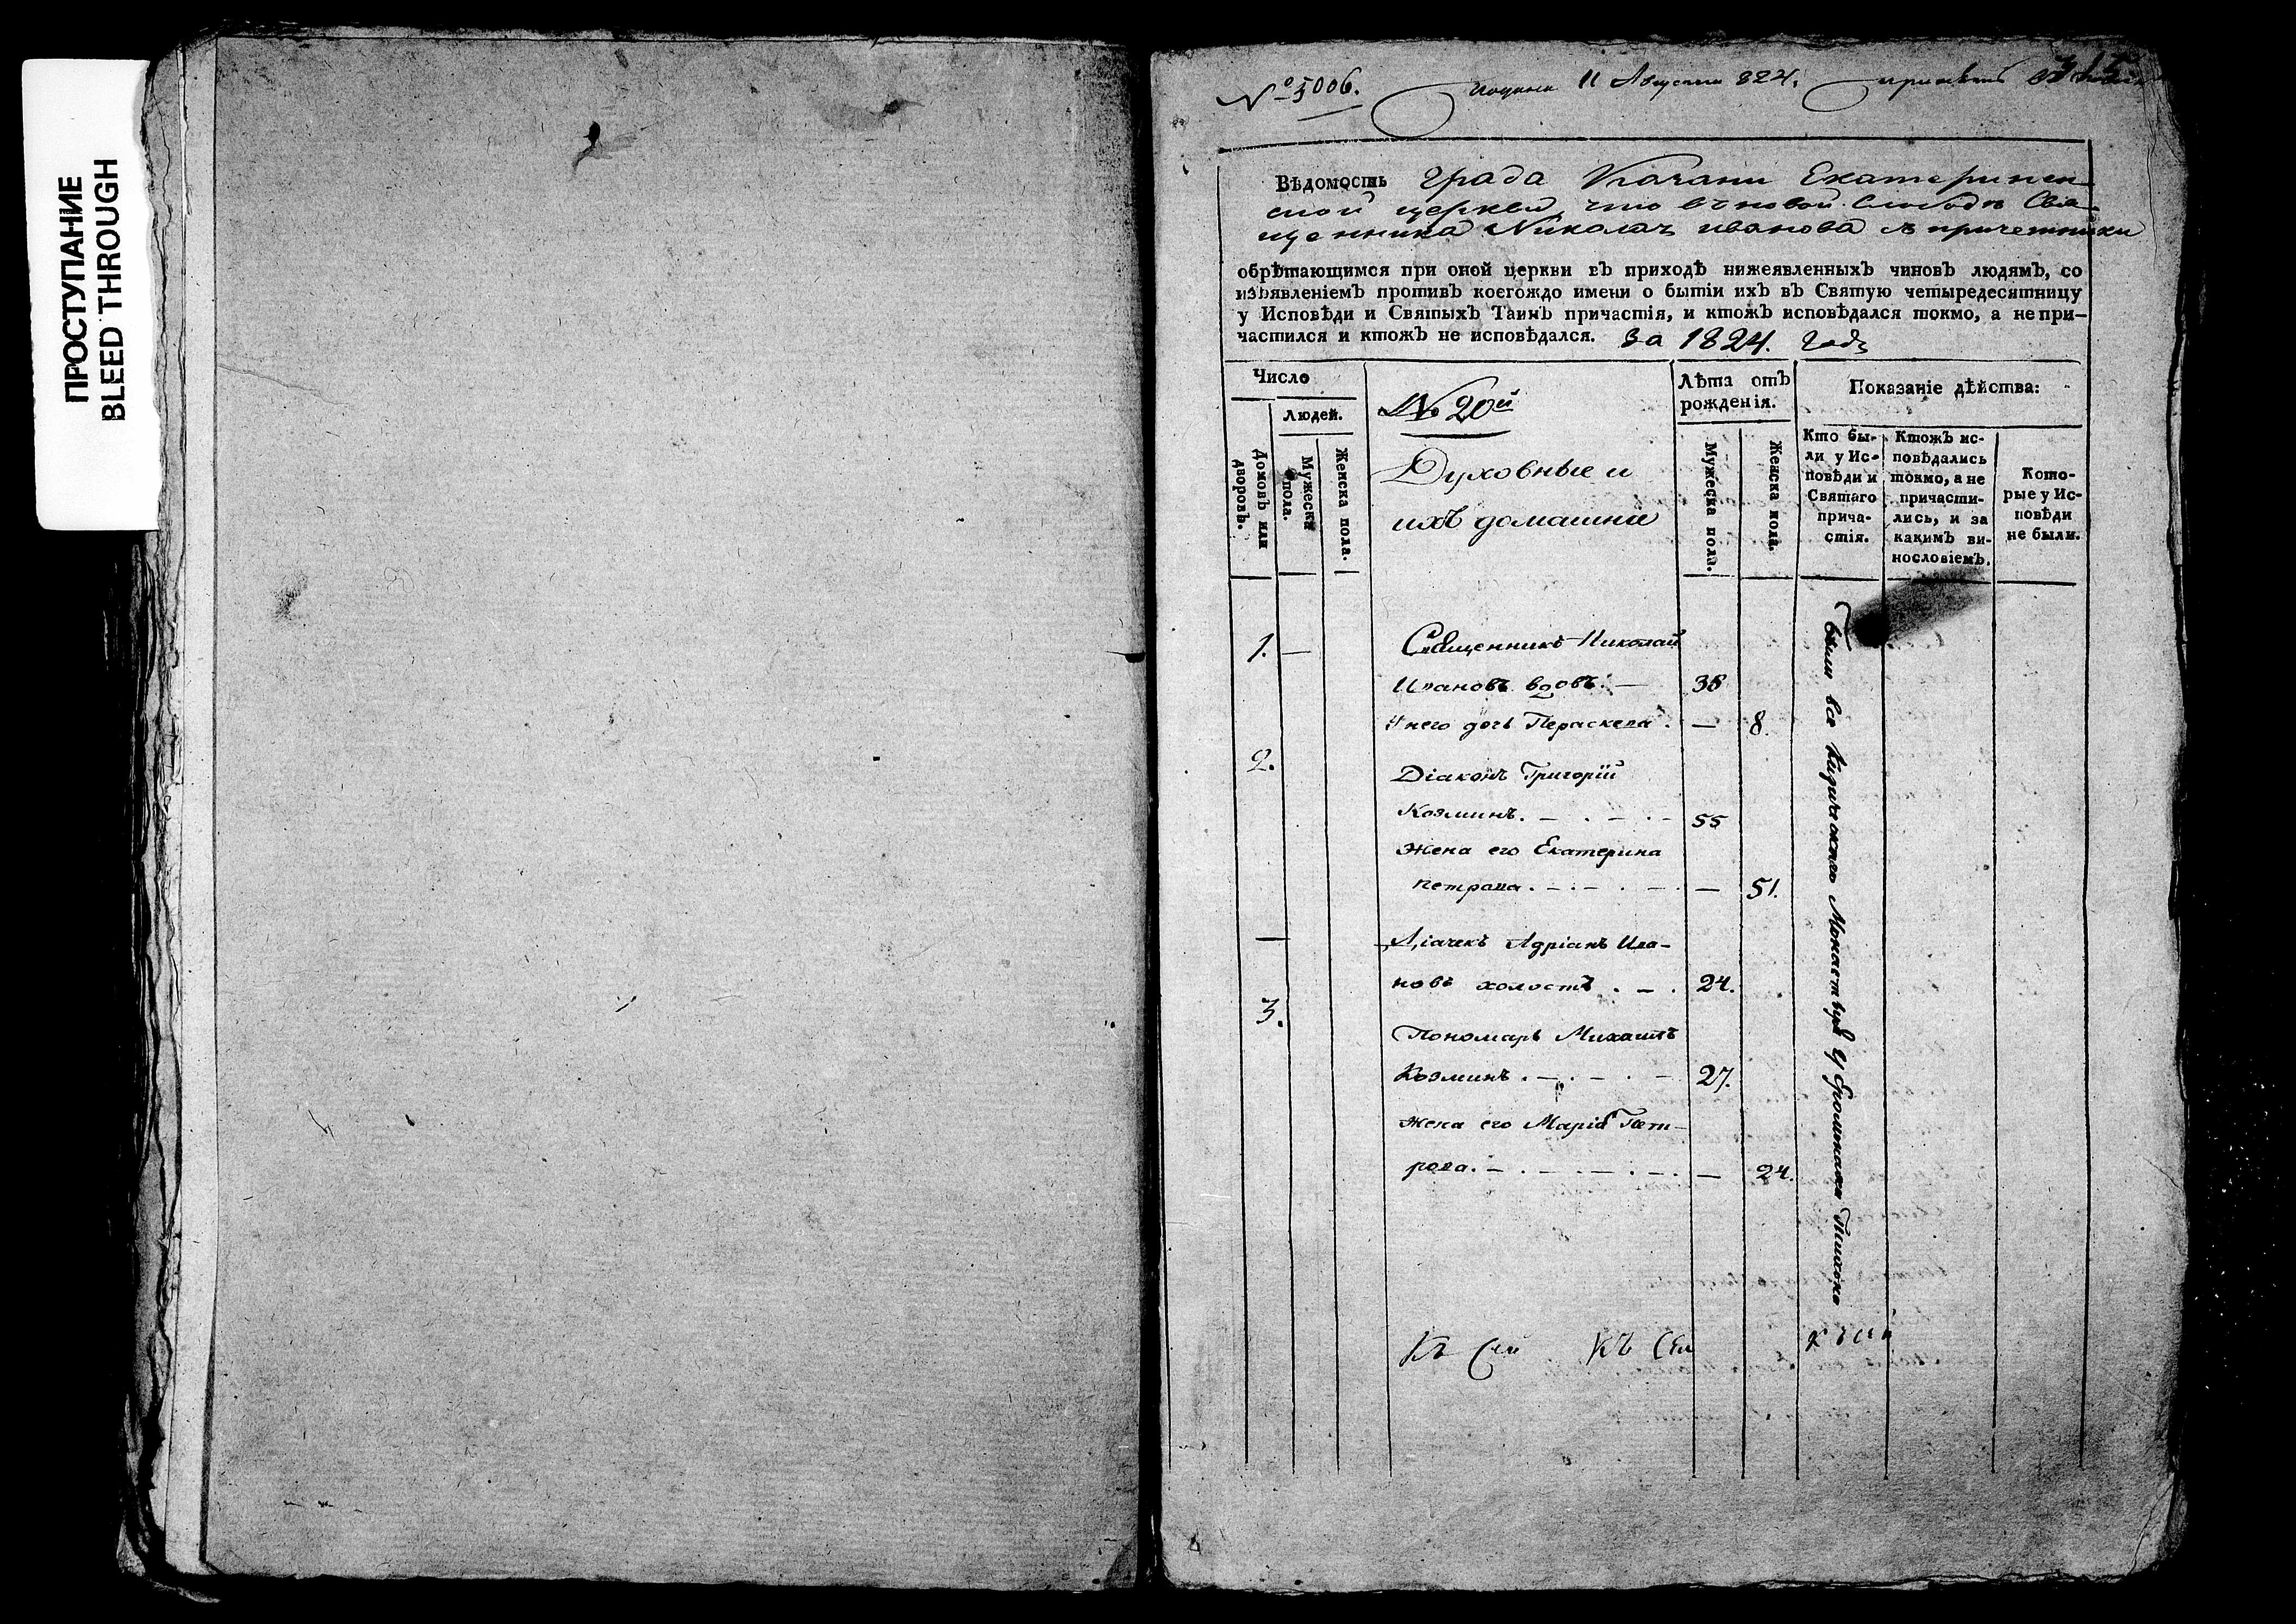 ПРОСТУПАНИЕ
BLEED THROUGH
№ 5006. 11 Августа 824.
315
Вѣдомость града Казани Екатеринен-
ской церкви, что въ новой Слободѣ Свя-
щенника Николая иванова съ причетники
обрѣтающимся при оной церкви въ приходѣ нижеявленныхъ чиновъ людямъ, со
изъявленіемъ противъ коегождо имени о бытіи ихъ въ Святую четыредесятницу
у Исповѣди и Святыхъ Таинъ причастія, и ктожъ исповѣдался токмо, а непри-
частился и ктожъ не исповѣдался. За 1824. годъ
Число
Людей.
Домовъ или дворовъ.
Мужеска пола.
Женска пола.
№ 20й
Духовные и
ихъ домашніе
Лѣта отъ
рожденія.
Мужеска пола.
Женска пола.
Показаніе дѣйства:
Кто бы-
ли у Ис-
повѣди и
Святаго
прича-
стія.
Ктожъ ис-
повѣдались
токмо, а не
причасти-
лись, и за
какимъ ви-
нословіемъ.
Кото-
рые у Ис-
повѣди
не были.
1. — Священникъ Николай
Ивановъ вдовъ. — 38
У него дочь Параскева. — 8.
2. Діаконъ Григорій
Козминъ. — . — . — 55
Жена его Екатерина
петрова. — . — . — — 51.
— Дiачекъ Адріанъ Ива-
новъ холостъ . — . 24.
3. Пономарь Михаилъ
Козминъ . — . — . — 27.
Жена его Марія Пет-
рова. — . — . — . — . — 24.
Были все Кизическаго Монастыря у
Къ сей Къ сей Къ сей